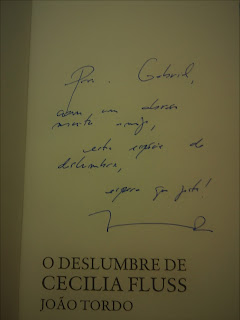 Para Gabriel,
com um abraço
muito amigo,
esta espécie de
deslumbre,
espero que goste!
O DESLUMBRE DE
CECILIA FLUSS
JOÃO TORDO